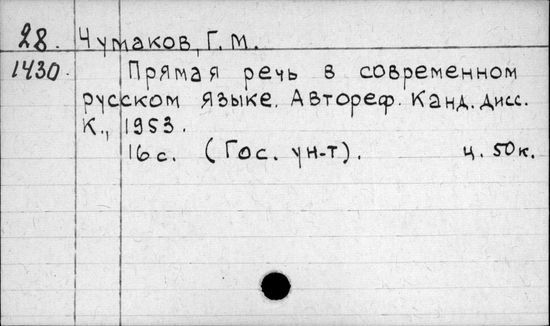 28. Чумаков, Г. М.
1430. Прямая речь в современном
русском языке. Автореф. Канд. дисс.
К., 1953.
16 с. (Гос. ун-т). ц. 50 к.